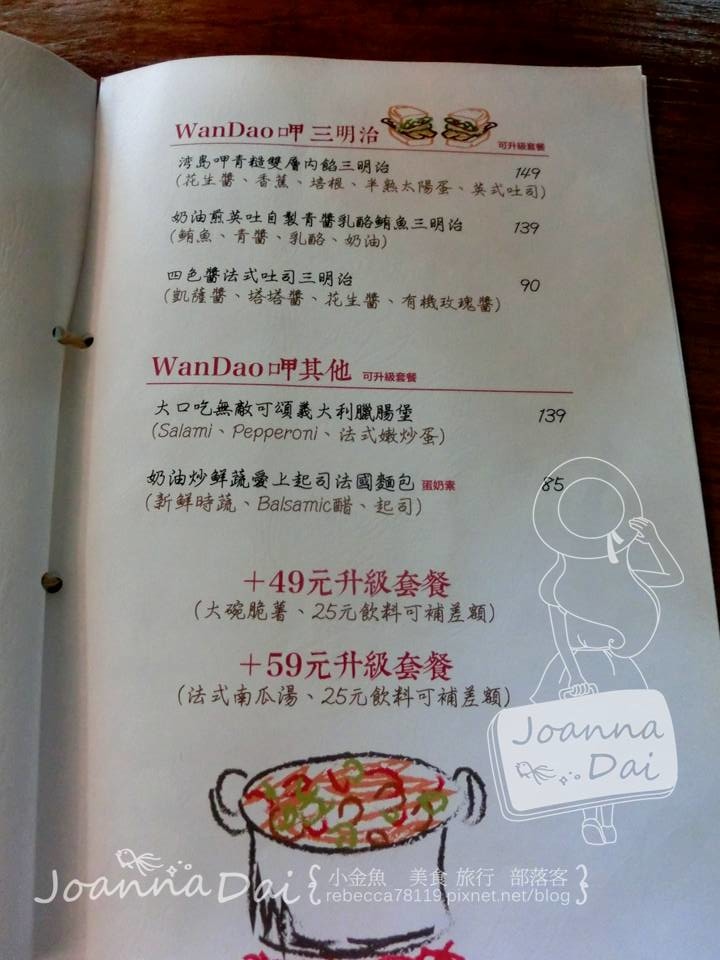 WanDao呷 三明治 可升級套餐
湾島呷青糙雙層內餡三明治 149
(花生醬、香蕉、培根、半熟太陽蛋、英式吐司)
奶油煎英吐自製青醬乳酪鮪魚三明治 139
(鮪魚、青醬、乳酪、奶油)
四色醬法式吐司三明治 90
(凱薩醬、塔塔醬、花生醬、有機玫瑰醬)
WanDao呷其他 可升級套餐
大口吃無敵可頌義大利臘腸堡 139
(Salami、Pepperoni、法式嫩炒蛋)
奶油炒鮮蔬愛上起司法國麵包 蛋奶素 85
(新鮮時蔬、Balsamic醋、起司)
+49元升級套餐
(大碗脆薯、25元飲料可補差額)
+59元升級套餐
(法式南瓜湯、25元飲料可補差額)
Joanna
Dai
Joanna Dai { 小金魚 美食 旅行 部落客
rebecca78119.pixnet.net/blog }